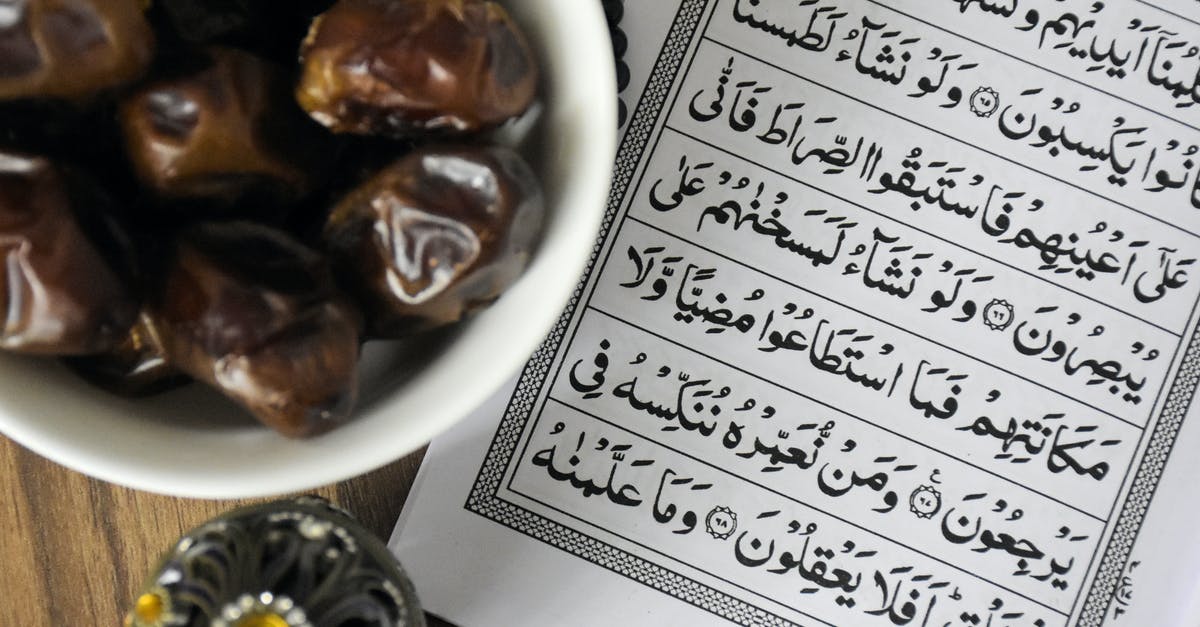 اَيْدِيْهِمْ
يَكْسِبُوْنَ ۝٦٥ وَلَوْ نَشَآءُ لَطَمَسْنَا
عَلٰٓى اَعْيُنِهِمْ فَاسْتَبَقُوا الصِّرَاطَ فَاَنّٰى
يُبْصِرُوْنَ ۝٦٦ وَلَوْ نَشَآءُ لَمَسَخْنٰهُمْ عَلٰى
مَكَانَتِهِمْ فَمَا اسْتَطَاعُوْا مُضِيًّا وَّلَا
يَرْجِعُوْنَ ۝٦٧ وَمَنْ نُّعَمِّرْهُ نُنَكِّسْهُ فِى
اَفَلَا يَعْقِلُوْنَ ۝٦٨ وَمَا عَلَّمْنٰهُ